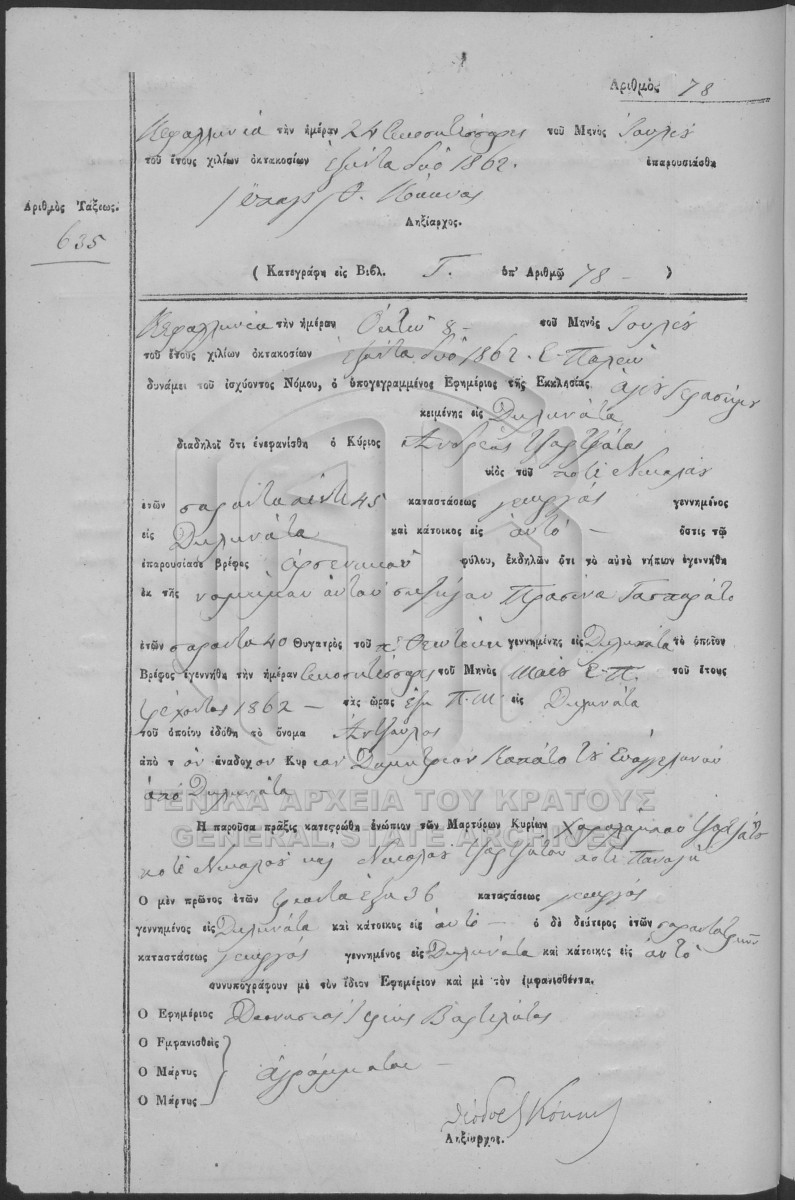 Αριθμὸς 78
Κεφαλληνία τὴν ἡμέραν 24 εικοσιτέσσαρες τοῦ Μηνὸς Ιουλίου
τοῦ ἔτους χιλίων ὀκτακοσίων ἑξήντα δυὸ 1862. ἐπαρουσιάσθη
Ληξίαρχος.
Αριθμὸς Τάξεως.
635
( Κατεγράφη εἰς Βιβλ. Γ. ὑπ' Αριθμῷ 78 — )
Κεφαλληνία τὴν ἡμέραν Οκτὼ 8 — τοῦ Μηνὸς Ιουλίου
τοῦ ἔτους χιλίων ὀκτακοσίων ἑξήντα δυὸ 1862. Ε. Παλαιὸ
δυνάμει τοῦ ἰσχύοντος Νόμου, ὁ ὑπογεγραμμένος Ἐφημέριος τῆς Εκκλησίας Αγίου Γερασίμου
κειμένης εἰς Διλινάτα
διαδηλοῖ ὅτι ἐνεφανίσθη ὁ Κύριος Ανδρέας
υἱὸς τοῦ ποτὲ Νικολάου
ἐτῶν σαράντα πέντε 45 καταστάσεως γεωργός γεννημένος
εἰς Διλινάτα καὶ κάτοικος εἰς αὐτό — ὅστις τῷ
ἐπαρουσίασε βρέφος ἀρσενικοῦ φύλου, ἐκδηλῶν ὅτι τὸ αὐτὸ νήπιον ἐγεννήθη
ἐκ τῆς νομίμου αὐτοῦ συζύγου Γασπαράτο
ἐτῶν σαράντα 40 Θυγατρὸς τοῦ γεννημένης εἰς Διλινάτα τὸ ὁποῖον
Βρέφος ἐγεννήθη τὴν ἡμέραν εικοσιτέσσαρες τοῦ Μηνὸς Μαΐου Ε. Π. τοῦ ἔτους
τρέχοντος 1862 — τὰς ὥρας ἕξη Π. Μ. εἰς Διλινάτα
τοῦ ὁποίου ἐδόθη τὸ ὄνομα Αντζουλος
ἀπὸ τ ὸν ἀνάδοχ ον Κυρ ιον Δημήτριον Καπάτο τοῦ Ευαγγελινοῦ
ἀπὸ Διλινάτα
ΓΕΝΙΚΑ ΑΡΧΕΙΑ ΤΟΥ ΚΡΑΤΟΥΣ
GENERAL STATE ARCHIVES
Η παροῦσα πρᾶξις κατεστρώθη ἐνώπιον τῶν Μαρτύρων Κυρίων Χαραλάμπου
ποτὲ Νικολοῦ καὶ Νικολάου ποτὲ Παναγῆ
Ο μὲν πρῶτος ἐτῶν τριάντα ἕξη 36 καταστάσεως γεωργός
γεννημένος εἰς Διλινάτα καὶ κάτοικος εἰς αὐτό — ὁ δὲ δεύτερος ἐτῶν
καταστάσεως γεωργός γεννημένος εἰς Διλινάτα καὶ κάτοικος εἰς αὐτό
συνυπογράφουν μὲ τὸν ἴδιον Ἐφημέριον καὶ μὲ τὸν ἐμφανισθέντα.
Ο Ἐφημέριος Διονύσιος Ιερεὺς Βαρτελάτος
Ο Εμφανισθεὶς
Ο Μάρτυς ἀγράμματοι —
Ο Μάρτυς
Ληξίαρχος.